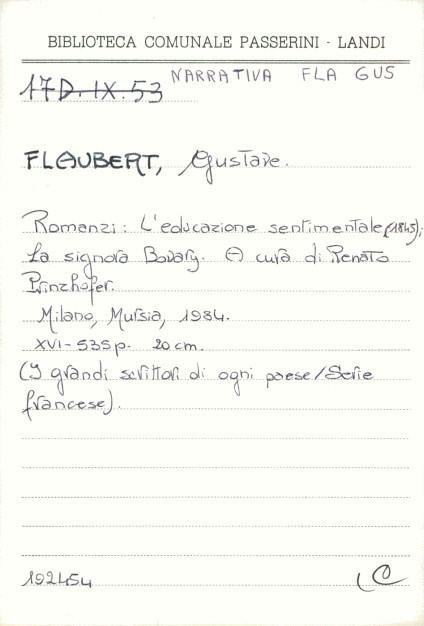 BIBLIOTECA COMUNALE PASSERINI - LANDI
17D.IX.53 NARRATIVA FLA GUS
FLAUBERT, Gustave.
Romanzi: L'educazione sentimentale (1845);
La signora Bovary. A cura di Renato
Prinzhofer.
Milano, Mursia, 1984.
XVI-535p. 20cm.
(I grandi scrittori di ogni paese/Serie
francese).
192454